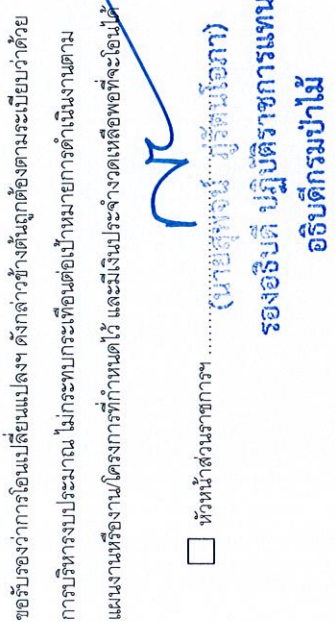 ขอรับรองว่าการโอนเปลี่ยนแปลงฯ ดังกล่าวข้างต้นถูกต้องตามระเบียบว่าด้วย
การบริหารงบประมาณ ไม่กระทบกระเทือนต่อเป้าหมายการดำเนินงานตาม
แผนงานหรืองาน/โครงการที่กำหนดไว้ และมีเงินประจำงวดเหลือพอที่จะโอนได้
หัวหน้าส่วนราชการฯ ................................
(นายสุพจน์ ภู่รัตนโอภา)
รองอธิบดี ปฏิบัติราชการแทน
อธิบดีกรมป่าไม้